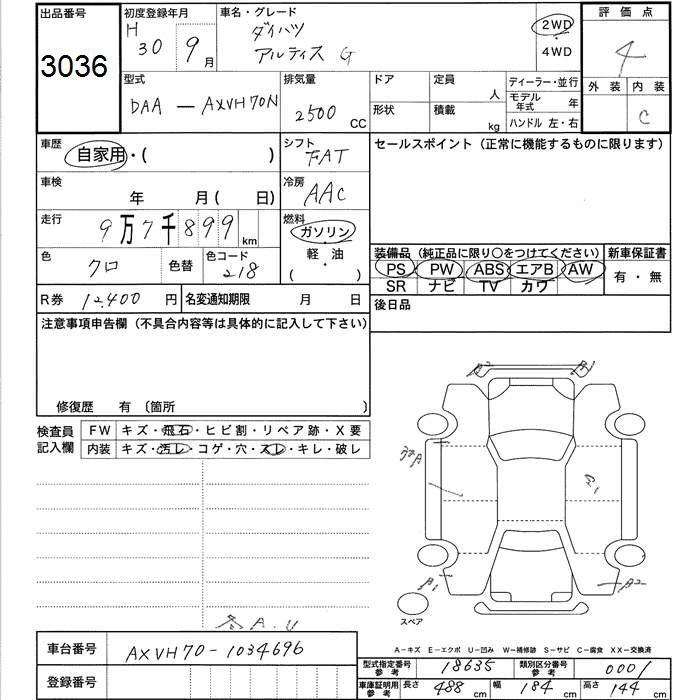 出品番号
3036
初度登録年月
H 30 9月
車名・グレード
ダイハツ
アルティス G
2WD
・
4WD
評価点
4
外装 内装
C
型式
DAA - AXVH70N
排気量
2500 CC
ドア
形状
定員 人
積載 kg
ディーラー・並行
モデル年式 年
ハンドル 左・右
車歴
自家用・( )
シフト
FAT
セールスポイント (正常に機能するものに限ります)
車検
年 月( 日)
冷房
AAC
走行
9万7千899 km
燃料
ガソリン
軽・油
( )
色
クロ
色替
色コード
218
装備品 (純正品に限り○をつけてください)
PS PW ABS エアB AW
SR ナビ TV カワ
新車保証書
有・無
R券 12,400 円
名変通知期限 月 日
後日品
注意事項申告欄 (不具合内容等は具体的に記入して下さい)
修復歴 有 〔箇所 〕
検査員記入欄
FW キズ・飛石・ヒビ割・リペア跡・X要
内装 キズ・汚レ・コゲ・穴・スレ・キレ・破レ
A.U
スペア
A-キズ E-エクボ U-凹み W-補修跡 S-サビ C-腐食 XX-交換済
車台番号 AXVH70-1034696
登録番号
型式指定番号 参考 18635
類別区分番号 参考 0001
車庫証明用 参考 長さ 488 cm 幅 184 cm 高さ 144 cm